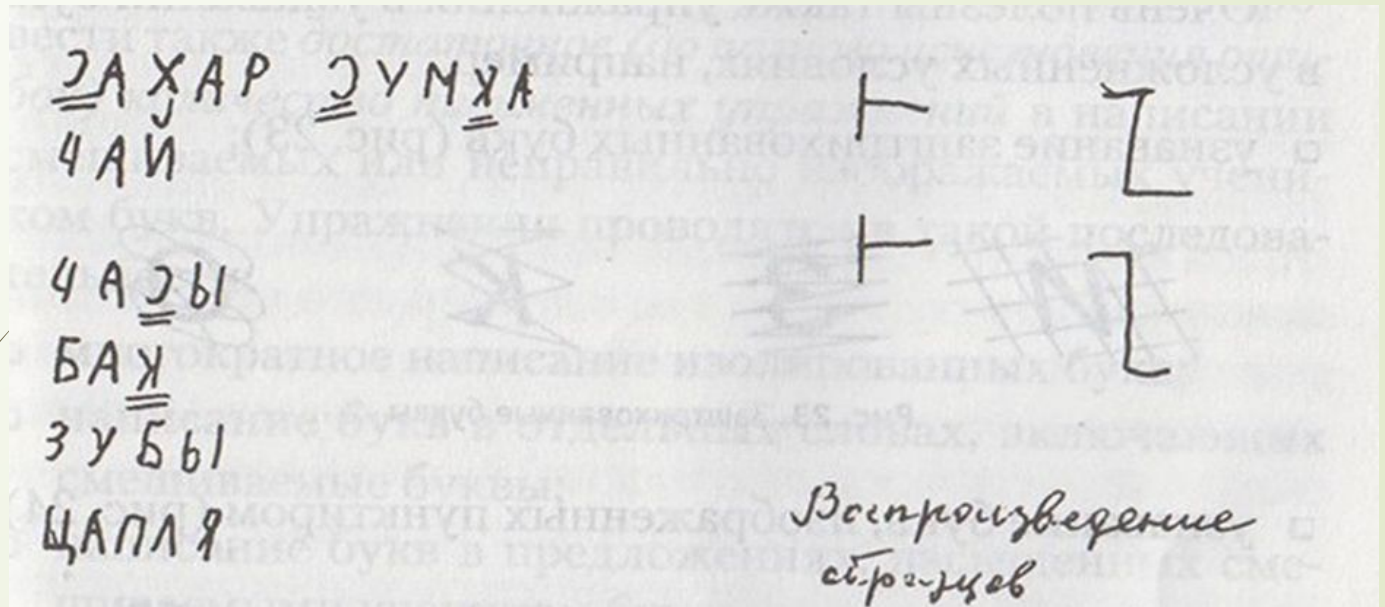 ƆАХАР ƆУМꓘА
ЧАЙ
ЧАƆЫ
БАꓘ
ЗУБЫ
ЩАПЛЯ
Воспроизведение
образцов